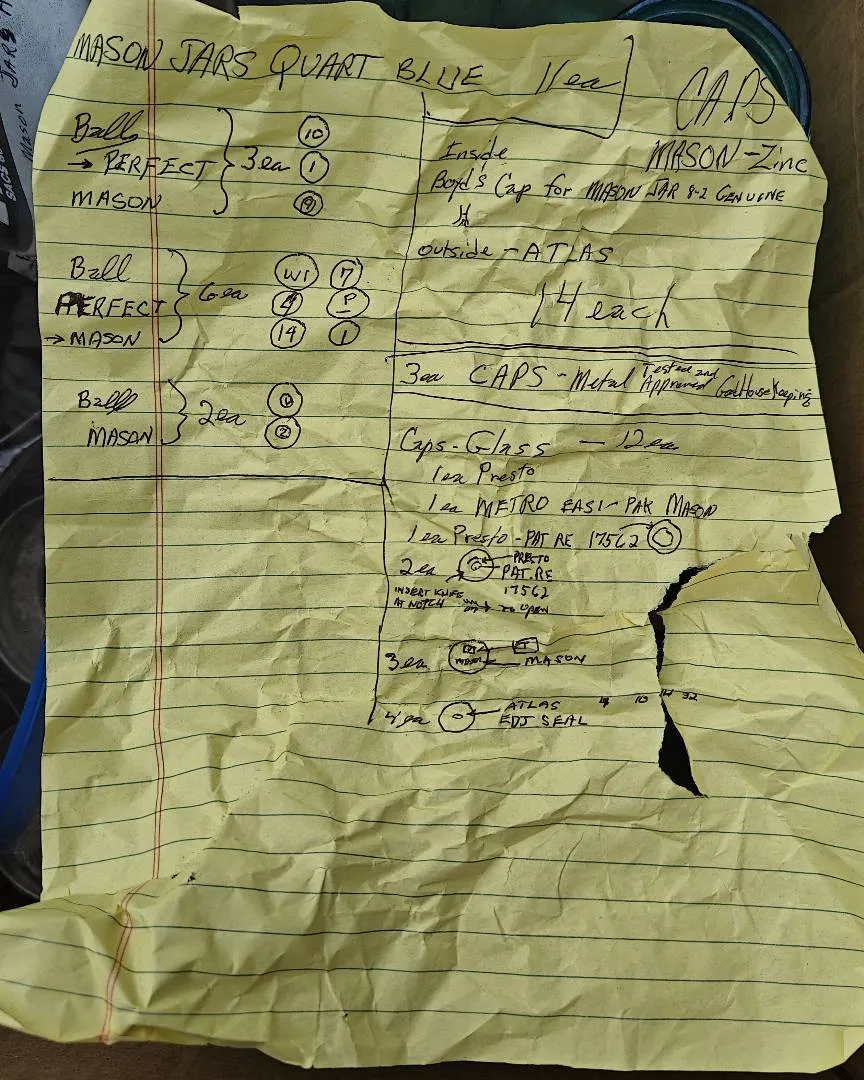 MASON JARS QUART BLUE 11ea
Ball 10
→ PERFECT 3ea 1
MASON 19
Ball W1 7
PERFECT 6ea 4 P
→ MASON 14 1
Ball
MASON 2ea 2
CAPS
Inside MASON-Zinc
Boyd's Cap for MASON JAR 8-2 GENUINE
outside - ATLAS
14 each
3ea CAPS - Metal Tested and
Approved Good HouseKeeping
Caps-Glass — 12ea
1ea Presto
1ea METRO EASI-PAK MASON
1ea Presto - PAT RE 17562
2ea PRESTO
PAT. RE
17562
INSERT KNIFE
AT NOTCH → TO OPEN
3ea MASON
4ea ATLAS
EDJ SEAL
10 14 32
Mason JARS